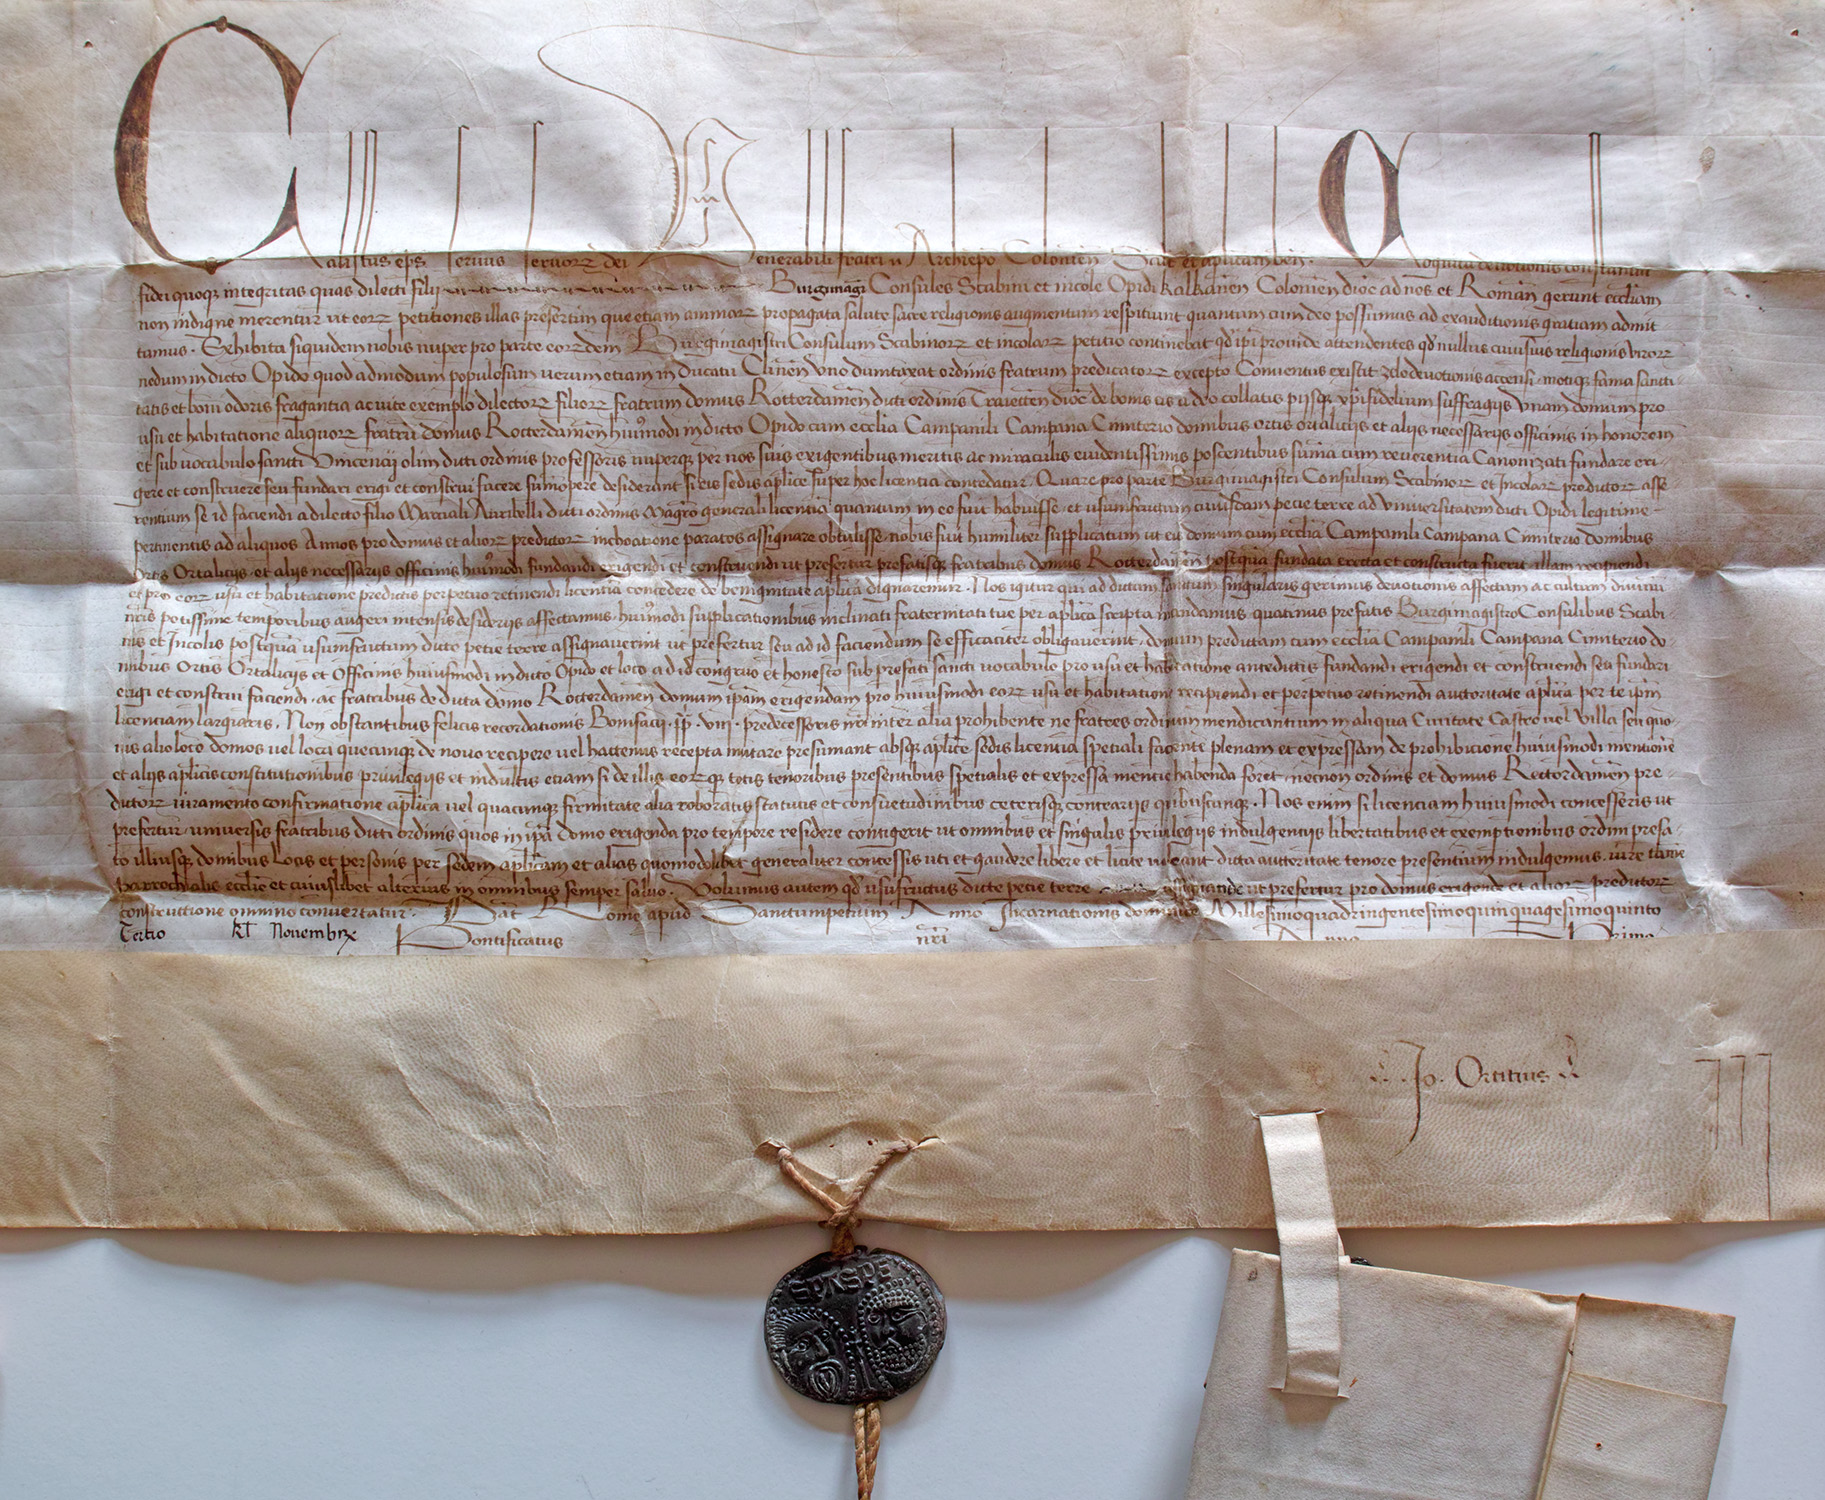 Calistus eps servus servorꝝ dei Venerabili fratri Archiepo Colonien Salt et aplicam ben. Exquisita devotionis constantia
fidei quoque integritas quas dilecti filii Burgimagri Consules Scabini et incole Opidi Kalkaren Colonien dioc ad nos et Romān gerunt eccliam
non indigne merentur ut eorꝝ petitiones illas presertim que etiam animarꝝ propagata salute sacre religionis augmentum respitiunt quantum cum deo possumus ad exauditionis gratiam admit-
tamus. Exhibita siquidem nobis nuper pro parte eorꝝdem Burgimagistri Consulum Scabinorꝝ et incolarꝝ petitio continebat qd ipi provide attendentes qd nullus cuiusvis religionis virorꝝ
nedum in dicto Opido quod admodum populosum verum etiam in Ducatu Clivēn uno dumtaxat ordinis fratrum predicatorꝝ excepto Conventus existit zelo devotionis accensi motique fama sancti-
tatis et boni odoris fragantia ac vite exemplo dilectorꝝ filiorꝝ fratrum domus Rotterdamēn dicti ordinis Traiecten dioc de bonis eis a deo collatis piisque xpifidelium suffragiis unam domum pro
usu et habitatione aliquorꝝ fratrū domus Rotterdamēn huiꝰmodi in dicto Opido cum ecclia Campanili Campana Cimiterio domibus ortis ortaliciis et aliis necessariis officinis in honorem
et sub vocabulo sancti Vincencij olim dicti ordinis professoris nuperque per nos suis exigentibus meritis ac miraculis evidentissimis poscentibus suma cum reverentia Canonizati fundare eri-
gere et construere seu fundari erigi et construi facere sumopere desiderant si eis sedis aplice super hoc licentia concedatur. Quare pro parte Burgimagistri Consulum Scabinorꝝ et Incolarꝝ predictorꝝ asse-
rentium se id faciendi a dilecto filio Marciali Auribelli dicti ordinis Magro generali licentiā quantum in eo fuit habuisse et usumfructum cuiusdam pecie terre ad universitatem dicti Opidi legitime
pertinentis ad aliquos Annos pro domus et aliorꝝ predictorꝝ inchoatione paratos assignare obtulisse nobis fuit humiliter supplicatum ut eis domum cum ecclia Campanili Campana Cimiterio domibus
ortis Ortaliciis et aliis necessariis officinis huiꝰmodi fundandi erigendi et construendi ut prefertur prefatisque fratribus domus Rotterdamēn postquā fundata erecta et constructa fuerit illam recipiendi
et pro eorꝝ usu et habitatione predictis perpetuo retinendi licentiā concedere de benignitate aplica dignaremur. Nos igitur qui ad dictum sanctum singularis gerimus devotionis affectum ac cultum divinū
nris potissime temporibus augeri intensis desideriis affectamus huiꝰmodi supplicationibus inclinati fraternitati tue per aplica scripta mandamus quatinus prefatis Burgimagistro Consulibus Scabi-
nis et Incolis postquā usumfructum dicte pecie terre assignaverint ut prefertur seu ad id faciendum se efficaciter obligaverint domum predictam cum ecclia Campanili Campana Cimiterio do-
mibus Ortis Ortaliciis et Officinis huiusmodi in dicto Opido et loco ad id congruo et honesto sub prefati sancti vocabulo pro usu et habitatione antedictis fundandi erigendi et construendi seu fundari
erigi et construi faciendi ac fratribus de dicta domo Rotterdamēn domum ipam erigendam pro huiusmodi eorꝝ usu et habitatione recipiendi et perpetuo retinendi auctoritate aplica per te ipm
licenciam largiaris. Non obstantibus felicis recordationis Bonifacij. pp. viij. predecessoris nri inter alia prohibente ne fratres ordinum mendicantium in aliqua Civitate Castro vel Villa seu quo-
vis alio loco domos vel loca quecunque de novo recipere vel hactenus recepta mutare presumant absque aplice sedis licentia spetiali faciente plenam et expressam de prohibicione huiusmodi mentionē
et aliis aplicis constitutionibus privilegiis et indultis etiam si de illis eorꝝque totis tenoribus presentibus spetialis et expressa mentio habenda foret necnon ordinis et domus Rotterdamēn pre-
dictorꝝ iuramento confirmatione aplica vel quacunque firmitate alia roboratis statutis et consuetudinibus ceterisque contrariis quibuscunque. Nos enim si licenciam huiusmodi concesseris ut
prefertur universis fratribus dicti ordinis quos in ipa domo erigenda pro tempore residere contigerit ut omnibus et singulis privilegiis indulgenciis libertatibus et exemptionibus ordini prefa-
to illiusque domibus locis et personis per sedem aplicam et alias quomodolibet generaliter concessis uti et gaudere libere et licite valeant dicta auctoritate tenore presentium indulgemus. iure tamen
parrochialis ecclie et cuiuslibet alterius in omnibus semper salvo. Volumus autem qd usufructus dicte pecie terre assignande ut prefertur pro domus erigende et aliorꝝ predictorꝝ
constructione omnino convertatur. Dat Rome apud Sanctumpetrum Anno Incarnationis dominice Millesimoquadringentesimoquinquagesimoquinto
Tertio kl Novembrꝝ Pontificatus nri Anno Primo
Jo. Orticius
SPASPE